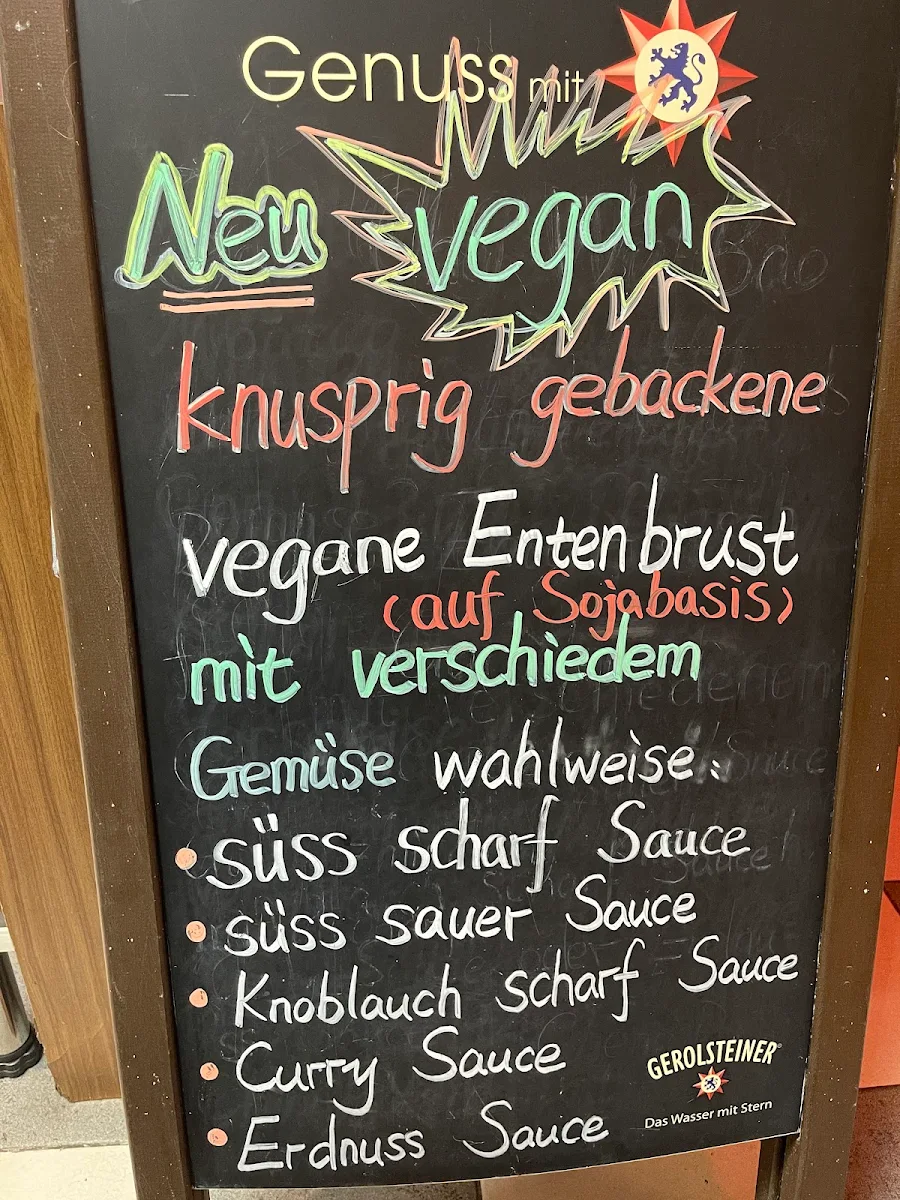 Genuss mit
Neu vegan
knusprig gebackene
vegane Entenbrust
(auf Sojabasis)
mit verschiedem
Gemüse wahlweise:
• süss scharf Sauce
• süss sauer Sauce
• Knoblauch scharf Sauce
• Curry Sauce
• Erdnuss Sauce
GEROLSTEINER®
Das Wasser mit Stern